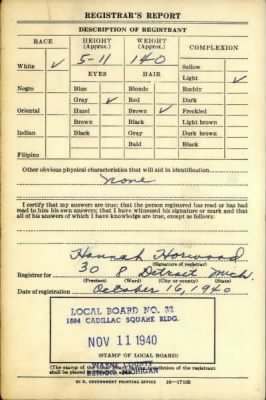 REGISTRAR'S REPORT
DESCRIPTION OF REGISTRANT
RACE HEIGHT (Approx.) WEIGHT (Approx.) COMPLEXION
White ✓ 5-11 140 Sallow
EYES HAIR Light ✓
Negro Blue Blonde Ruddy
Gray ✓ Red Dark
Oriental Hazel Brown ✓ Freckled
Brown Black Light brown
Indian Black Gray Dark brown
Bald Black
Filipino
Other obvious physical characteristics that will aid in identification
None
I certify that my answers are true; that the person registered has read or has had
read to him his own answers; that I have witnessed his signature or mark and that
all of his answers of which I have knowledge are true, except as follows:
Hannah Horwood
(Signature of registrar)
Registrar for 30 8 Detroit Mich.
(Precinct) (Ward) (City or county) (State)
Date of registration October 16, 1940
LOCAL BOARD NO. 32
1504 CADILLAC SQUARE BLDG.
NOV 11 1940
(STAMP OF LOCAL BOARD)
WAYNE COUNTY
DETROIT MICHIGAN
(The stamp of the Local Board having jurisdiction of the registrant
shall be placed in the above space.)
U. S. GOVERNMENT PRINTING OFFICE 16—17105